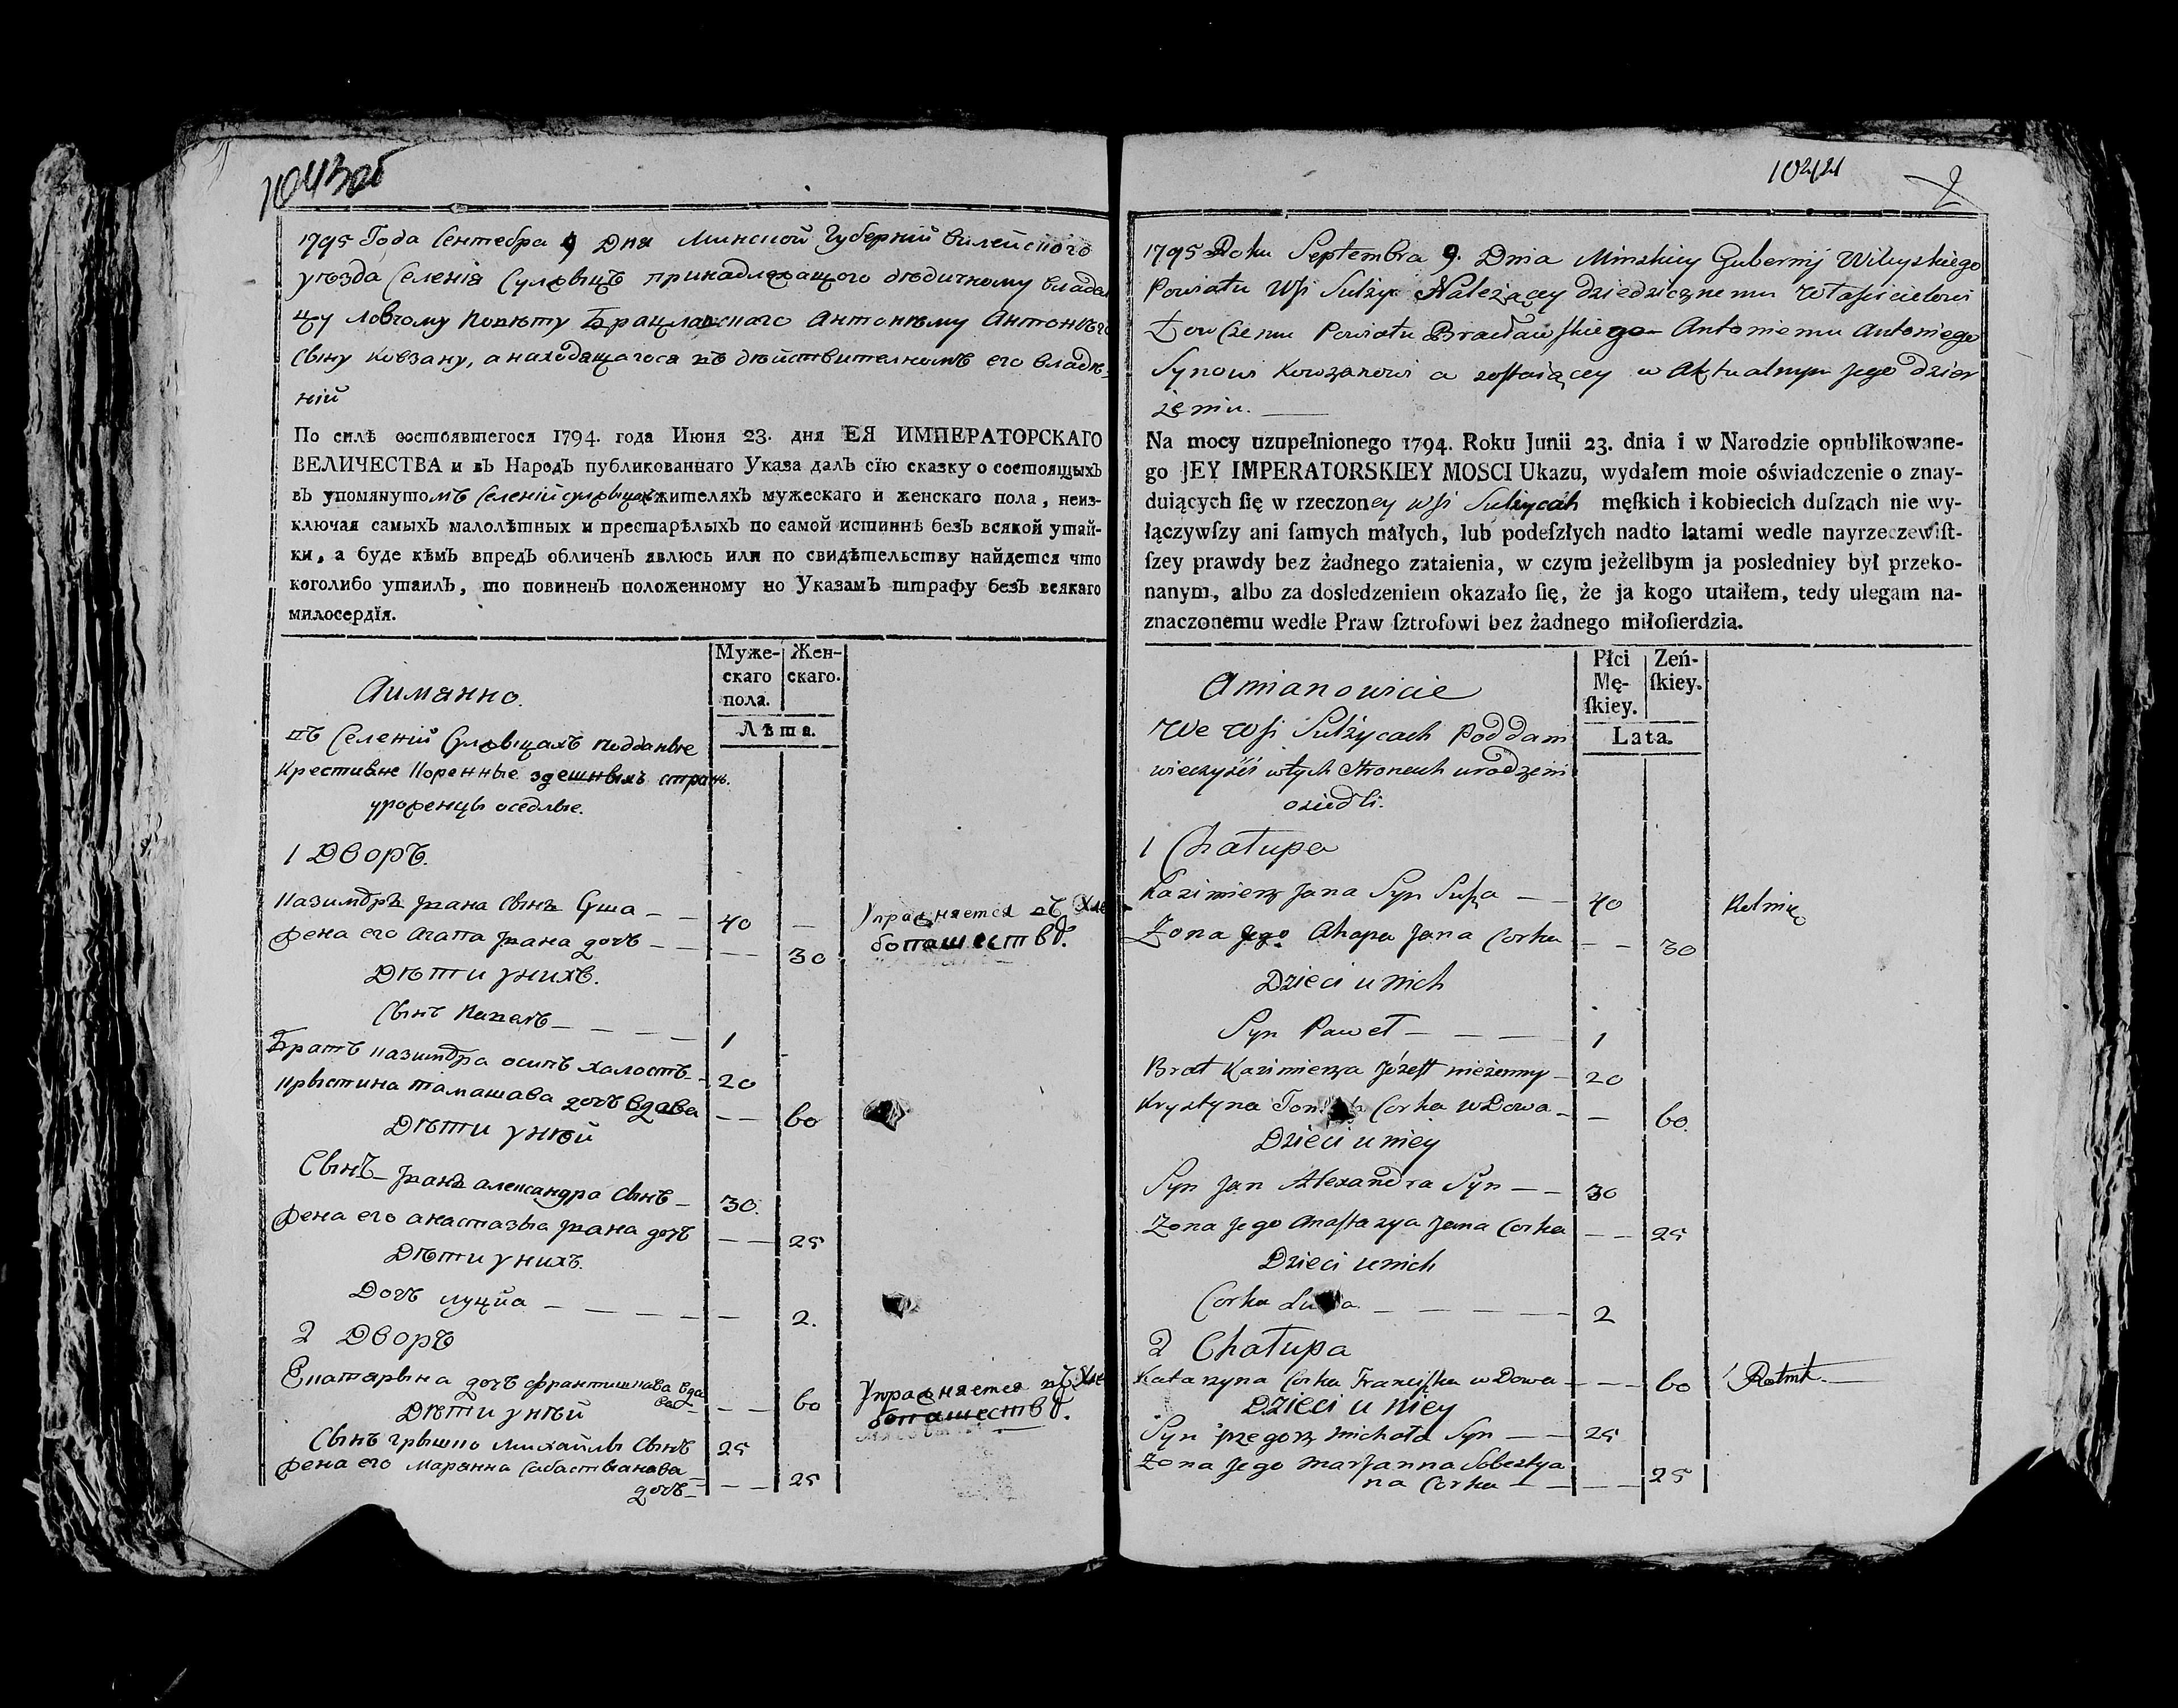 1043об
1795 Года Сентебра 9 Дня Минской Губерній Вилейского
уѣзда Селенія Сулжыцъ принадлежащого дѣдичному влада
цу Ловчому Повѣту Брацлавского Антонѣму Антонѣго
Сыну Ковзану, а находящагося въ дѣйствителномъ его владѣ-
ній
По силѣ состоявшегося 1794. года Июня 23. дня ЕЯ ИМПЕРАТОРСКАГО
ВЕЛИЧЕСТВА и въ Народъ публикованнаго Указа далъ сїю сказку о состоящыхъ
въ упомянутомъ Селеній Сулжыцахъ жителяхъ мужескаго и женскаго пола, неиз-
ключая самыхъ малолѣтных и престарѣлыхъ по самой истиннѣ безъ всякой утай-
ки, а буде кѣмъ впредъ обличенъ явлюсь или по свидѣтельству найдется что
коголибо утаилъ, то повиненъ положенному по Указамъ штрафу безъ всякаго
милосердїя.
Муже-
скаго
пола.
Жен-
скаго.
Лѣта.
Аимянно.
въ Селеній Сулжыцахъ подданые
Крестияне Коренные здешныхъ странъ.
уроженцы оседлые.
1 Дворъ.
Казимдръ Яна Сынъ Суша — — 40 —
Упражняется въ Хле
бопашествѣ.
Жена его Агапа Яна дочъ — — — 30
Дѣти унихъ.
Сынъ Павелъ — — — — 1
Братъ Казимдра осипъ халостъ — 20
Крыстина тамашава дочъ вдава — — 60
Дѣти унѣй
Сынъ Янъ александра Сынъ — 30.
Жена его анастазыа Яна дочъ — — 25
Дѣти унихъ.
Дочъ луцйа — — — — — 2.
2 Дворъ
Екатарына дочъ франтишкава вда
ва — — — 60
Упражняется въ Хле
бопашествѣ.
Дѣти унѣй
Сынъ грышко михайлы Сынъ 25
Жена его марянна Сабастыанава —
дочъ — — — 25
1044
2
1795 Roku Septembra 9. Dnia Minskiey Gubernij Wileyskiego
Powiatu Wsi Sulżyc Należącey dziedzicznemu Właścicielowi
Łowczemu Powiatu Bracławskiego Antoniemu Antoniego
Synowi Kowzanowi a zostaiącey w Aktualnym Jego dzier
żeniu. —
Na mocy uzupełnionego 1794. Roku Junii 23. dnia i w Narodzie opublikowane-
go JEY IMPERATORSKIEY MOSCI Ukazu, wydałem moie oświadczenie o znay-
duiących ſię w rzeczoney wsi Sulżycach męſkich i kobiecich duſzach nie wy-
łączywſzy ani ſamych małych, lub podeſzłych nadto latami wedle nayrzeczewiſt-
ſzey prawdy bez żadnego zataienia, w czym jeżelibym ja posledniey był przeko-
nanym, albo za dosledzeniem okazało ſię, że ja kogo utaiłem, tedy ulegam na-
znaczonemu wedle Praw ſztrofowi bez żadnego miłoſierdzia.
Płci
Mę-
ſkiey.
Zeń-
ſkiey.
Lata.
Amianowicie
We Wsi Sulżycach Poddani
wieczyści wtych Stronach urodzeni
osiedli.
1 Chałupa
Kazimierz Jana Syn Susza — — 40
Rolnik
Zona Jego Ahapa Jana Corka — — 30
Dzieci u nich
Syn Paweł — — — 1
Brat Kazimierza Józeff nieżenny — 20
Krystyna Corka wDowa — — 60.
Dzieci u niey
Syn Jan Alexandra Syn — — 30
Zona Jego Anastazya Jana Corka — — 25
Dzieci u nich
Corka — — — — — 2
2 Chałupa
Katarzyna Corka Franciszka wDowa — — — 60
Rolnik. —
Dzieci u niey
Syn Jrzegorz Michała Syn — — 25
Zona Jego Marjanna Sobestya
na Corka — — — — 25